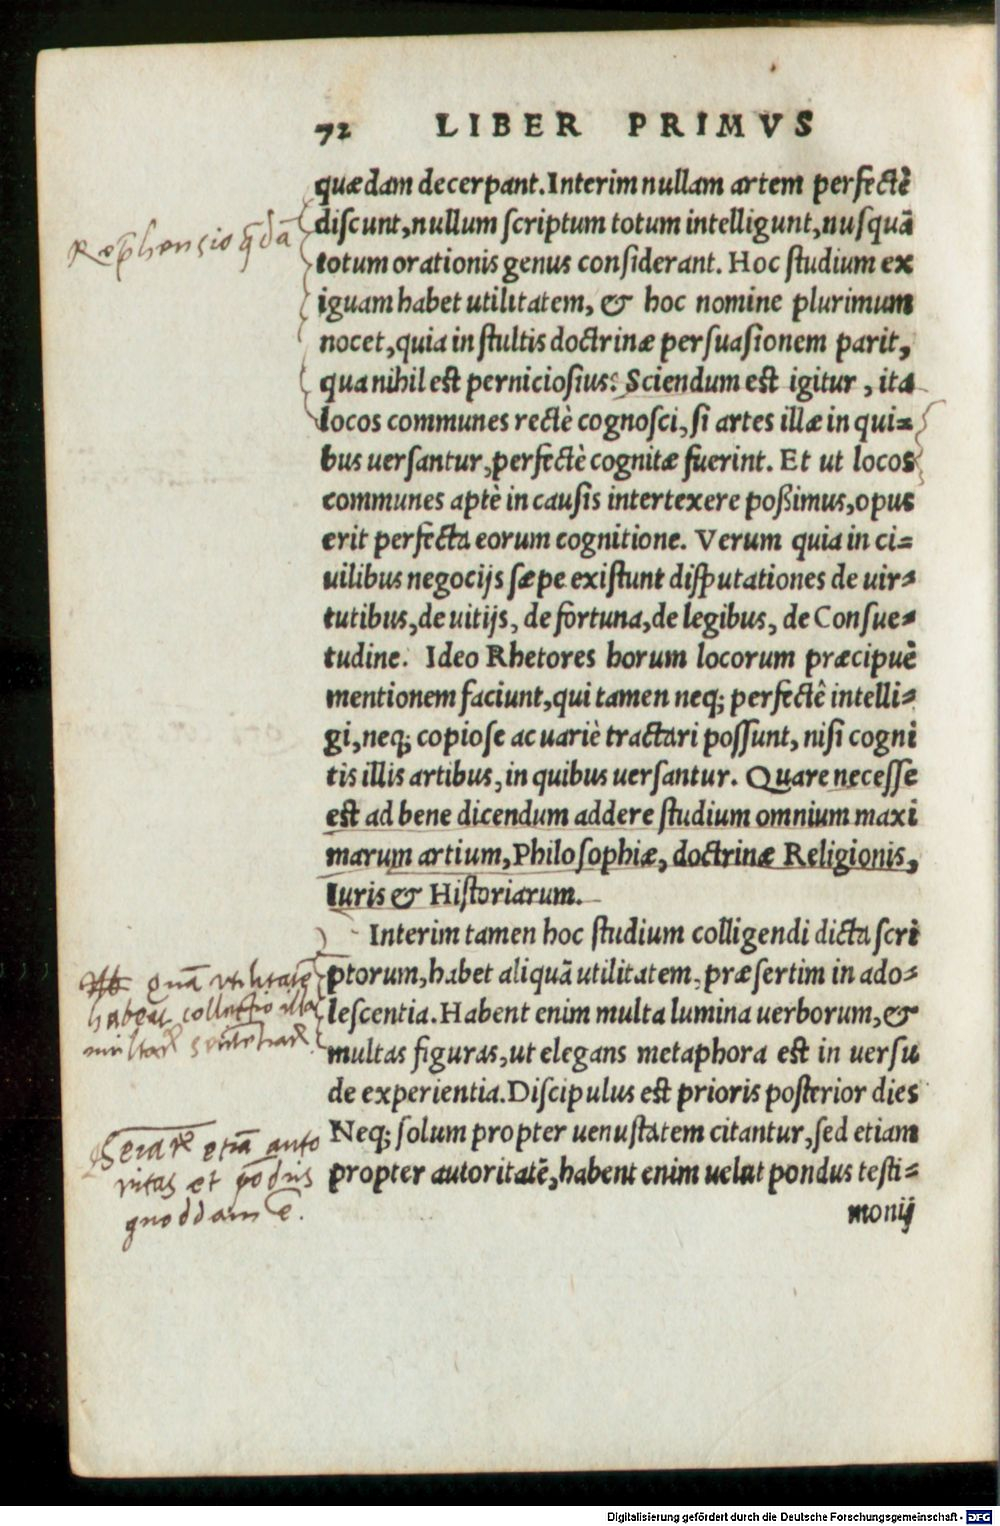 72 LIBER PRIMVS
quædam decerpant. Interim nullam artem perfectè
discunt, nullum scriptum totum intelligunt, nusquā
totum orationis genus considerant. Hoc studium ex
iguam habet utilitatem, & hoc nomine plurimum
nocet, quia in stultis doctrinæ persuasionem parit,
qua nihil est perniciosius: Sciendum est igitur, ita
locos communes rectè cognosci, si artes illæ in qui=
bus uersantur, perfectè cognitæ fuerint. Et ut locos
communes aptè in causis intertexere poßimus, opus
erit perfecta eorum cognitione. Verum quia in ci=
uilibus negocijs sæpe existunt disputationes de uir=
tutibus, de uitijs, de fortuna, de legibus, de Consue=
tudine. Ideo Rhetores horum locorum præcipuè
mentionem faciunt, qui tamen neq; perfectê intelli=
gi, neq; copiose ac uariè tractari possunt, nisi cogni
tis illis artibus, in quibus uersantur. Quare necesse
est ad bene dicendum addere studium omnium maxi
marum artium, Philosophiæ, doctrinæ Religionis,
Iuris & Historiarum.
Interim tamen hoc studium colligendi dicta scri
ptorum, habet aliquā utilitatem, præsertim in ado=
lescentia. Habent enim multa lumina uerborum, &
multas figuras, ut elegans metaphora est in uersu
de experientia. Discipulus est prioris posterior dies
Neq; solum propter uenustatem citantur, sed etiam
propter autoritatē, habent enim uelut pondus testi=
monij
Rep̄hensio q̄dā
quā vtilitatē
habeat collectio illa
multarꝝ sententiarꝝ
etiā auto
ritas et pōdus
quoddam ē.
Digitalisierung gefördert durch die Deutsche Forschungsgemeinschaft - DFG